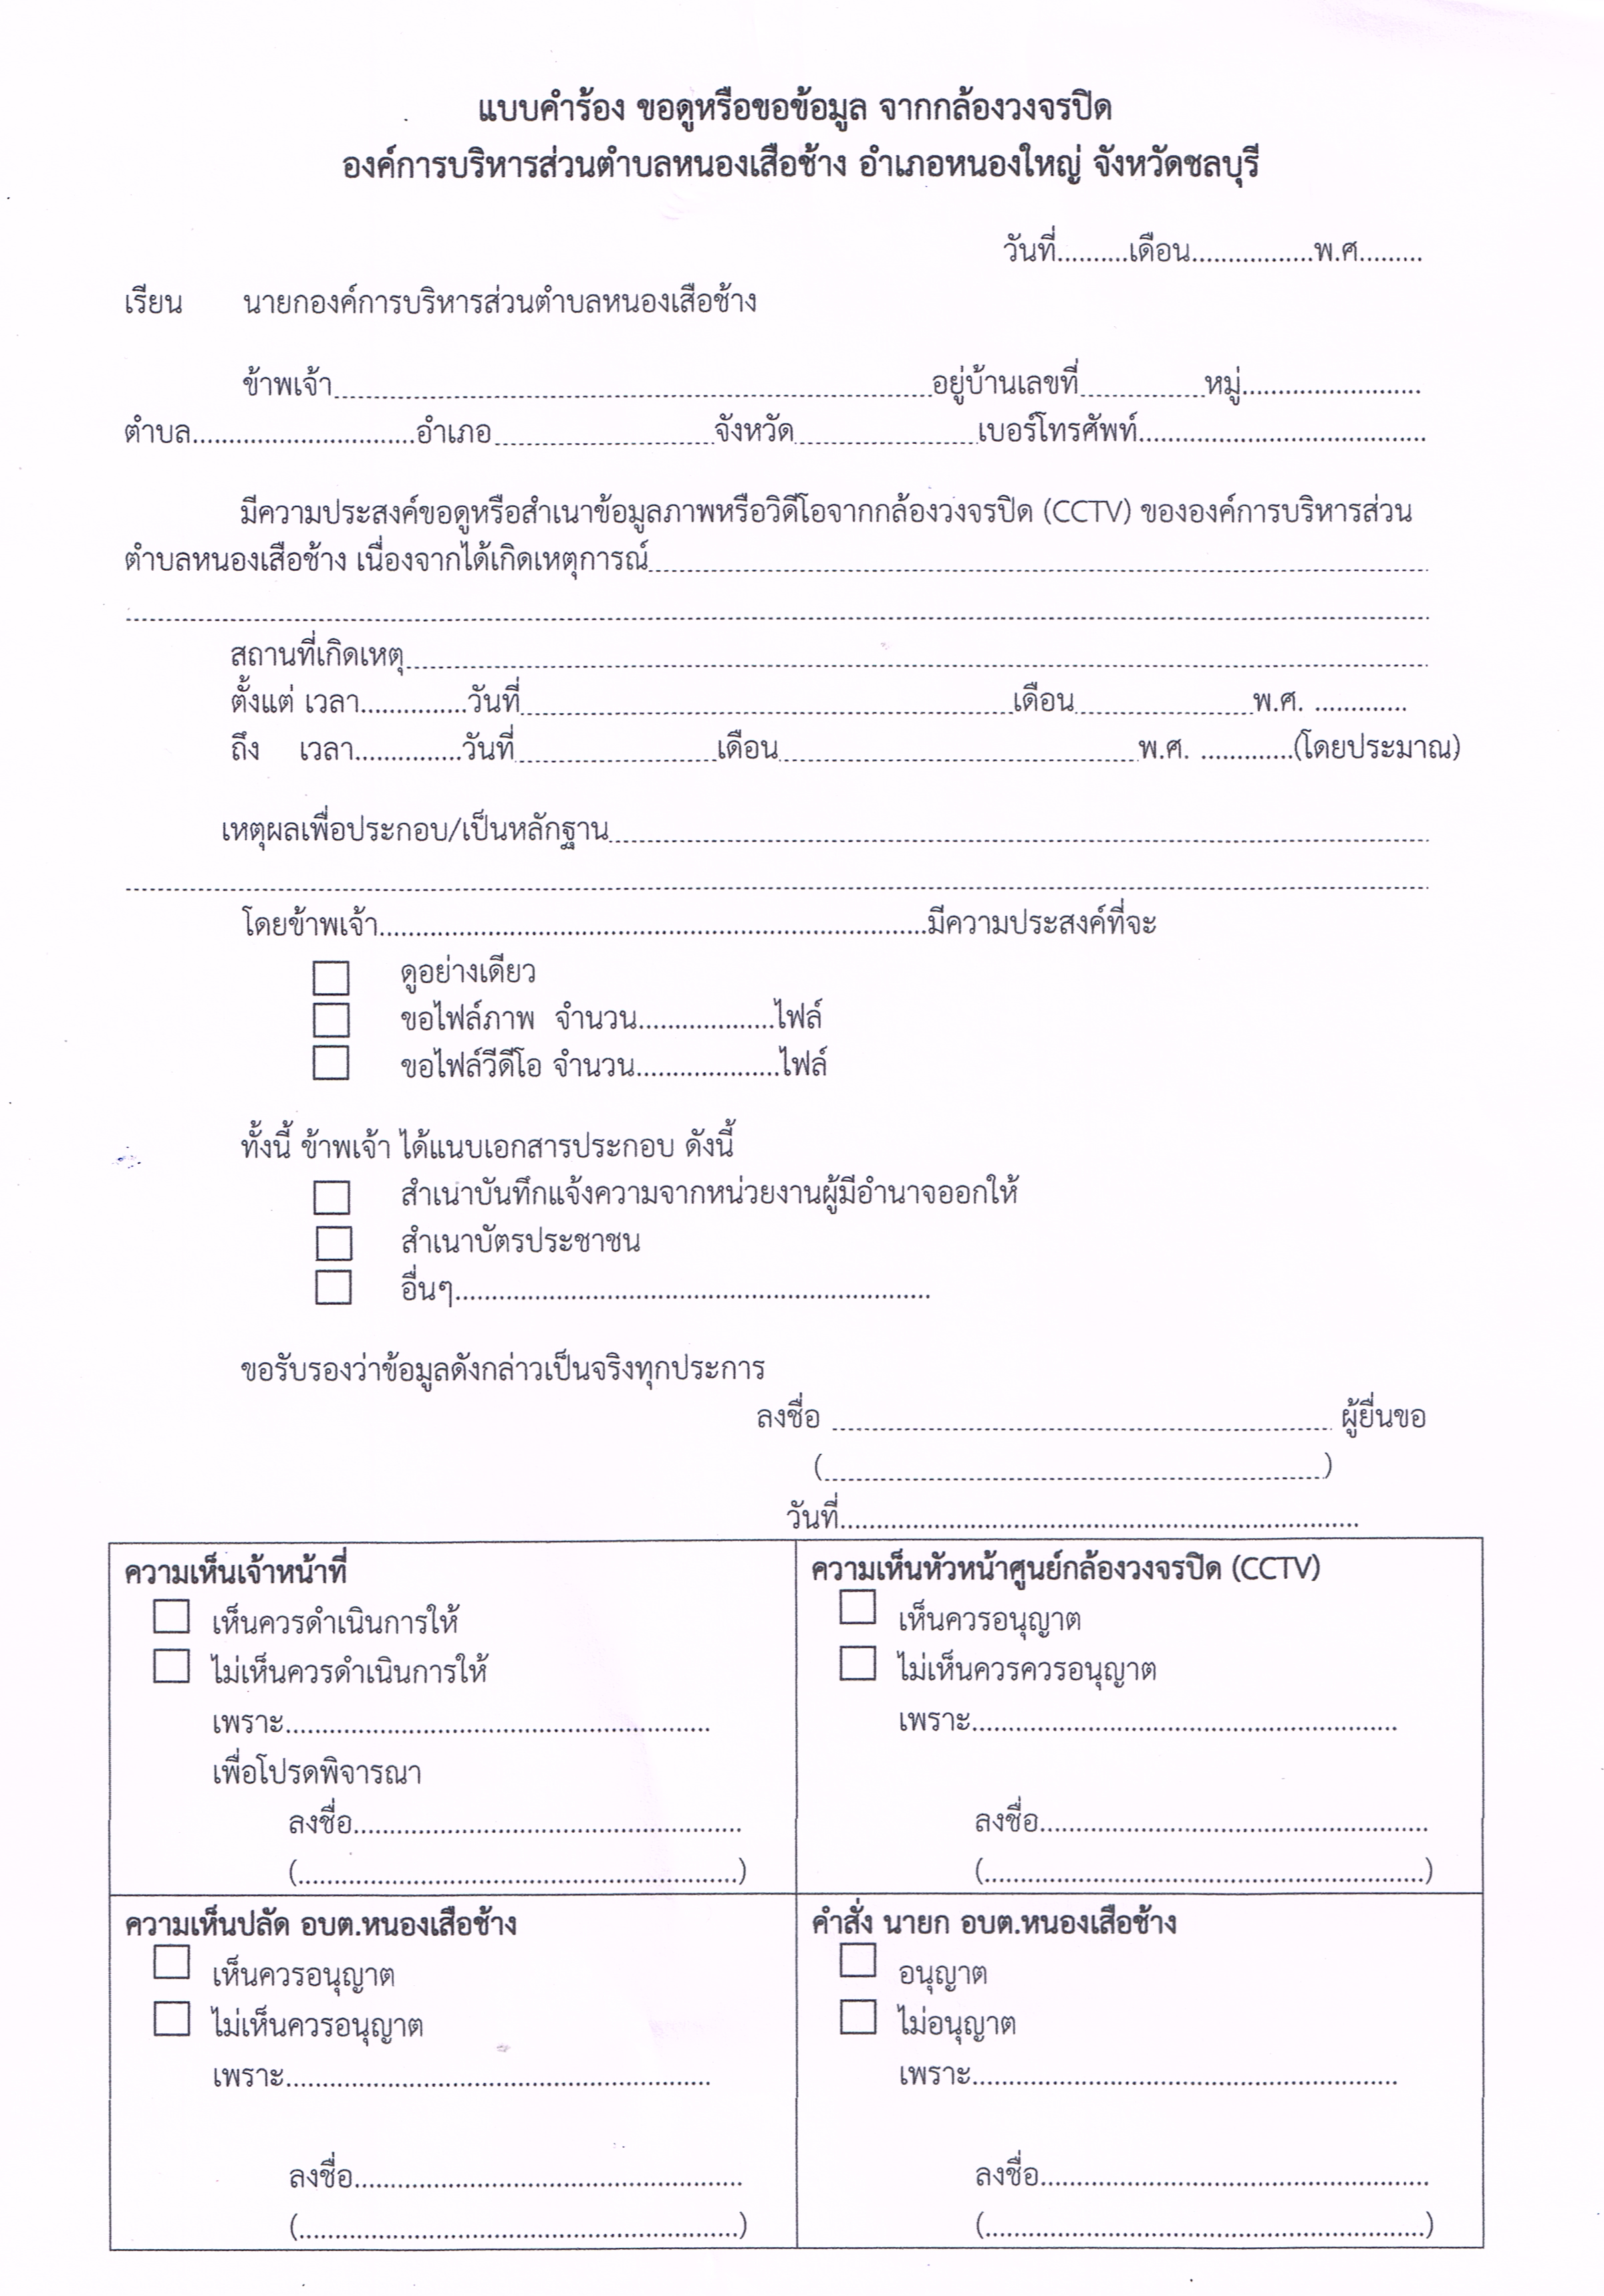 แบบคำร้อง ขอดูหรือขอข้อมูล จากกล้องวงจรปิด
องค์การบริหารส่วนตำบลหนองเสือช้าง อำเภอหนองใหญ่ จังหวัดชลบุรี
วันที่..........เดือน.................พ.ศ.........
เรียน นายกองค์การบริหารส่วนตำบลหนองเสือช้าง
ข้าพเจ้า..........................................................................อยู่บ้านเลขที่...............หมู่.........................
ตำบล...............................อำเภอ...........................จังหวัด.......................เบอร์โทรศัพท์........................................
มีความประสงค์ขอดูหรือสำเนาข้อมูลภาพหรือวิดีโอจากกล้องวงจรปิด (CCTV) ขององค์การบริหารส่วน
ตำบลหนองเสือช้าง เนื่องจากได้เกิดเหตุการณ์................................................................................................
................................................................................................................................................................
สถานที่เกิดเหตุ..............................................................................................................................
ตั้งแต่ เวลา...............วันที่.............................................................เดือน......................พ.ศ. .............
ถึง เวลา...............วันที่.........................เดือน.............................................พ.ศ. .............(โดยประมาณ)
เหตุผลเพื่อประกอบ/เป็นหลักฐาน.....................................................................................................
................................................................................................................................................................
โดยข้าพเจ้า.............................................................................มีความประสงค์ที่จะ
☐ ดูอย่างเดียว
☐ ขอไฟล์ภาพ จำนวน...................ไฟล์
☐ ขอไฟล์วีดีโอ จำนวน....................ไฟล์
ทั้งนี้ ข้าพเจ้า ได้แนบเอกสารประกอบ ดังนี้
☐ สำเนาบันทึกแจ้งความจากหน่วยงานผู้มีอำนาจออกให้
☐ สำเนาบัตรประชาชน
☐ อื่นๆ...................................................................
ขอรับรองว่าข้อมูลดังกล่าวเป็นจริงทุกประการ
ลงชื่อ .............................................................. ผู้ยื่นขอ
(..............................................................)
วันที่.........................................................................
ความเห็นเจ้าหน้าที่
☐ เห็นควรดำเนินการให้
☐ ไม่เห็นควรดำเนินการให้
เพราะ............................................................
เพื่อโปรดพิจารณา
ลงชื่อ.......................................................
(..............................................................)
ความเห็นหัวหน้าศูนย์กล้องวงจรปิด (CCTV)
☐ เห็นควรอนุญาต
☐ ไม่เห็นควรควรอนุญาต
เพราะ............................................................
ลงชื่อ.......................................................
(..............................................................)
ความเห็นปลัด อบต.หนองเสือช้าง
☐ เห็นควรอนุญาต
☐ ไม่เห็นควรอนุญาต
เพราะ............................................................
ลงชื่อ.......................................................
(..............................................................)
คำสั่ง นายก อบต.หนองเสือช้าง
☐ อนุญาต
☐ ไม่อนุญาต
เพราะ............................................................
ลงชื่อ.......................................................
(..............................................................)